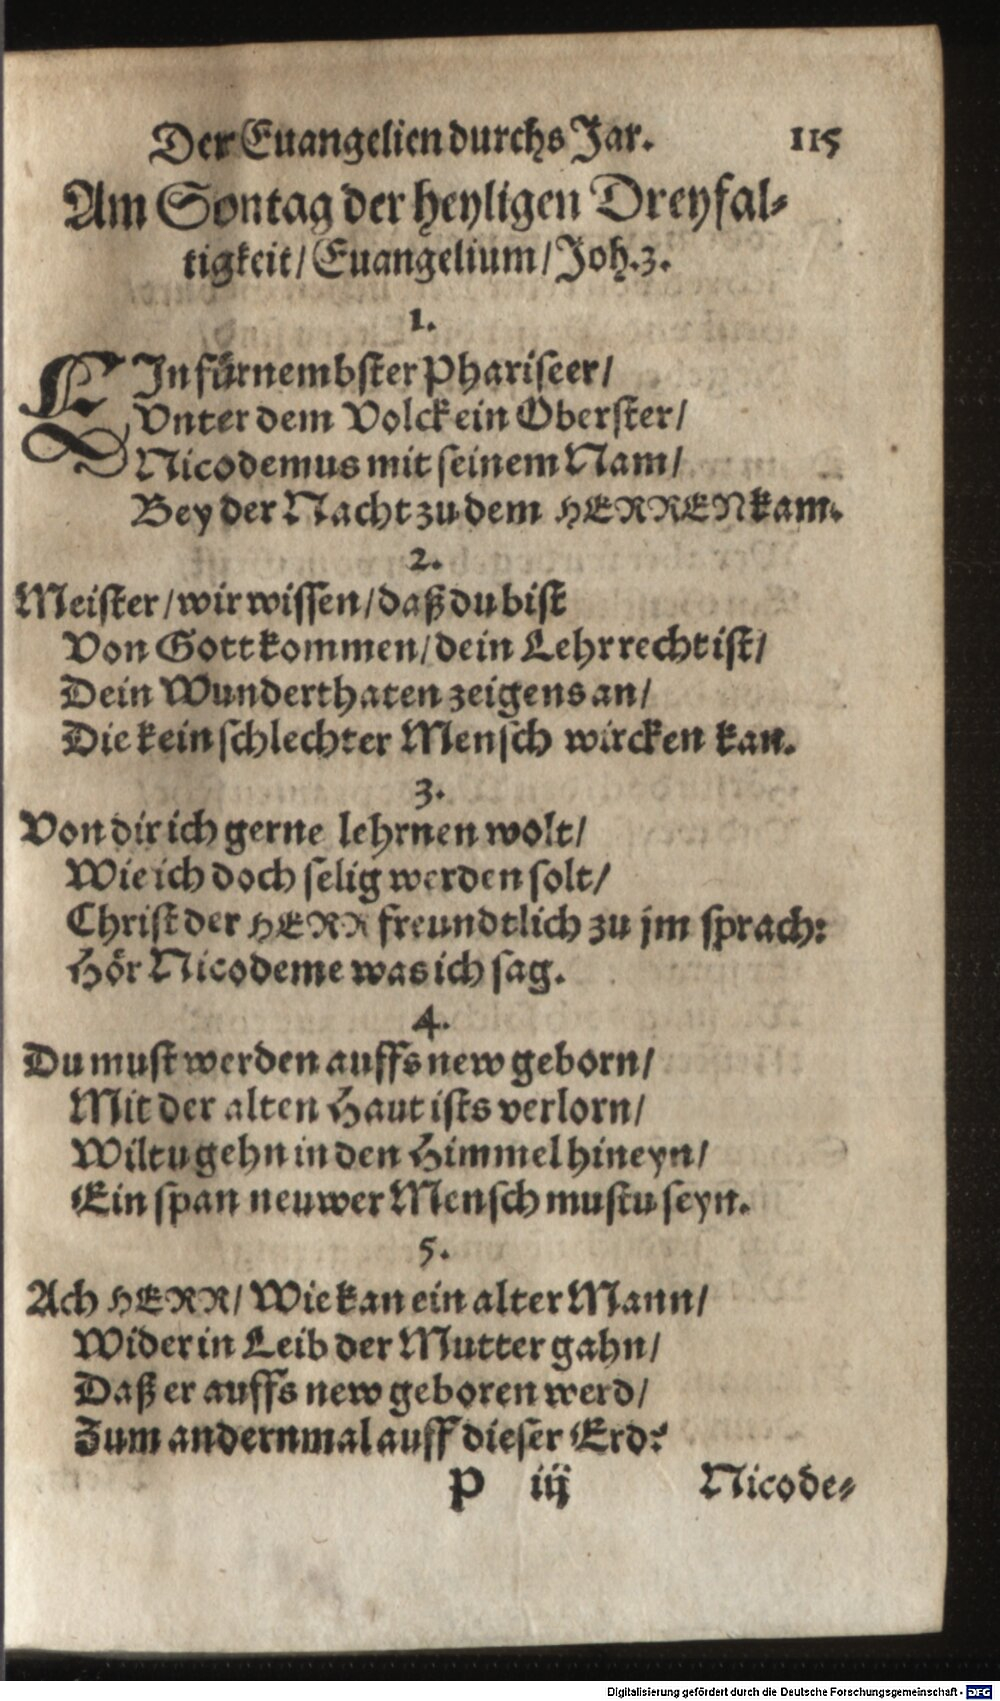 Der Euangelien durchs Jar. 115
Am Sontag der heyligen Dreyfal-
tigkeit/ Euangelium/ Joh. 3.
1.
EIn fürnembster Phariseer/
Vnter dem Volck ein Oberster/
Nicodemus mit seinem Nam/
Bey der Nacht zu dem HERREN kam.
2.
Meister/ wir wissen/ daß du bist
Von Gott kommen/ dein Lehr recht ist/
Dein Wunderthaten zeigens an/
Die kein schlechter Mensch wircken kan.
3.
Von dir ich gerne lehrnen wolt/
Wie ich doch selig werden solt/
Christ der HERR freundtlich zu jm sprach:
Hör Nicodeme was ich sag.
4.
Du must werden auffs new geborn/
Mit der alten Haut ists verlorn/
Wiltu gehn in den Himmel hineyn/
Ein span neuwer Mensch mustu seyn.
5.
Ach HERR/ Wie kan ein alter Mann/
Wider in Leib der Mutter gahn/
Daß er auffs new geboren werd/
Zum andernmal auff dieser Erd?
P iij Nicode-
Digitalisierung gefördert durch die Deutsche Forschungsgemeinschaft - DFG